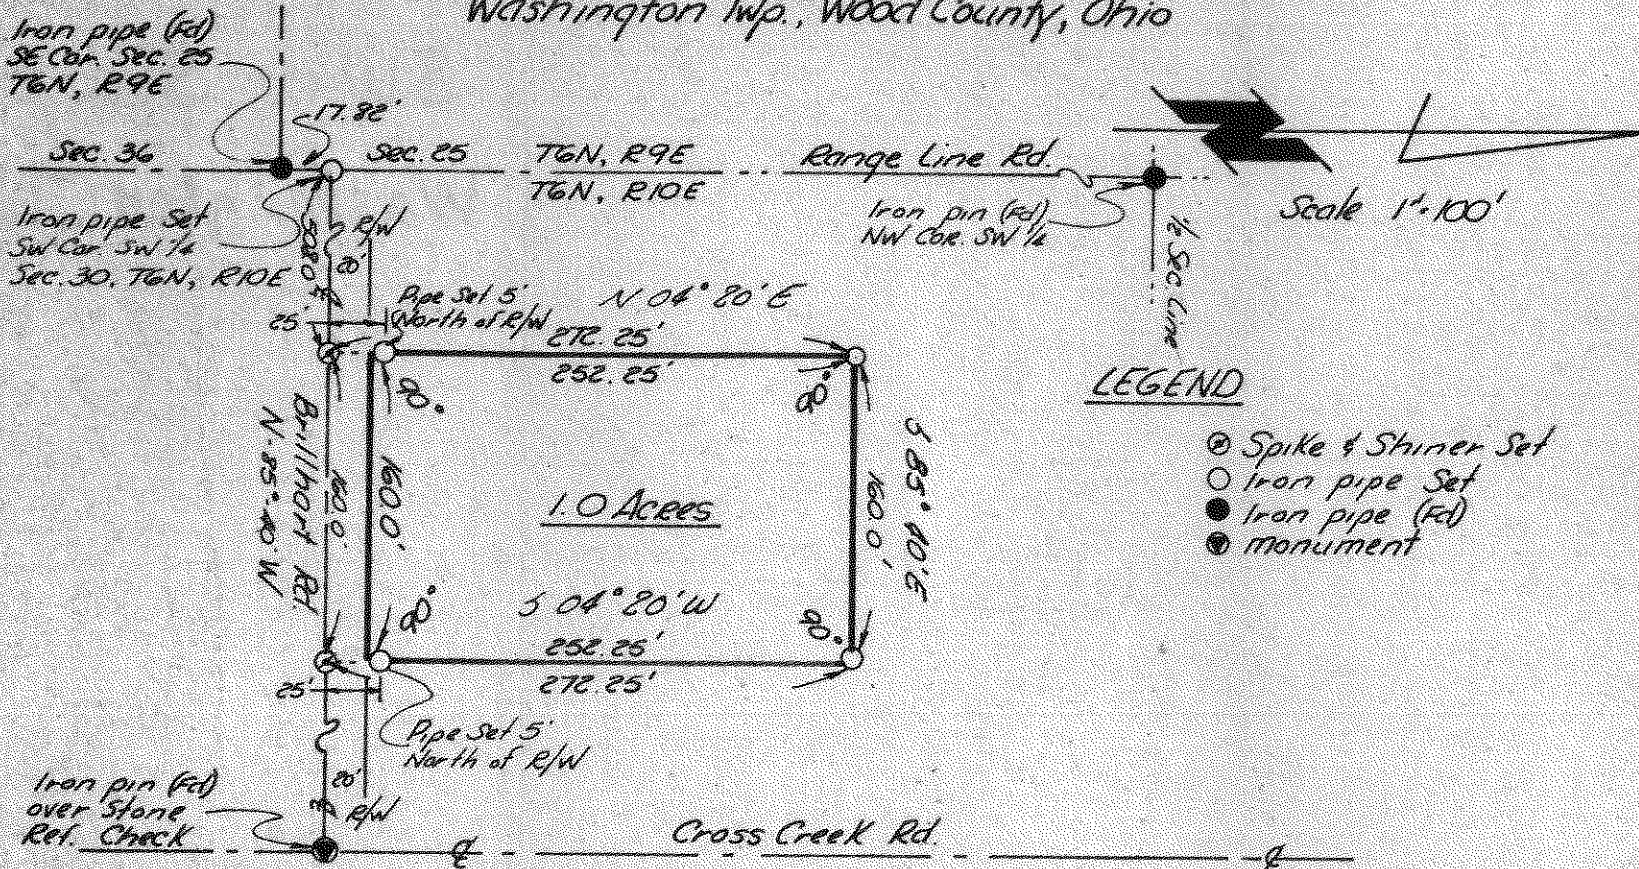 Washington Twp., Wood County, Ohio
Iron pipe (Fd)
SE Cor. Sec. 25
T6N, R9E
17.82'
Sec. 36
Sec. 25
T6N, R9E
Range Line Rd.
T6N, R10E
Iron pipe Set
SW Cor. SW 1/4
Sec. 30, T6N, R10E
R/W
20'
Iron pin (Fd)
NW Cor. SW 1/4
1/2 Sec Line
Scale 1"=100'
25'
Pipe Set 5'
North of R/W
N 04° 20' E
272.25'
252.25'
90°
90°
LEGEND
Spike & Shiner Set
Iron pipe Set
Iron pipe (Fd)
Monument
Brillhart Rd
N 85° 40' W
160.0'
160.0'
1.0 Acres
160.0'
S 85° 40' E
90°
S 04° 20' W
90°
252.25'
272.25'
25'
Pipe Set 5'
North of R/W
Iron pin (Fd)
over Stone
Ref. Check
20'
R/W
Cross Creek Rd.